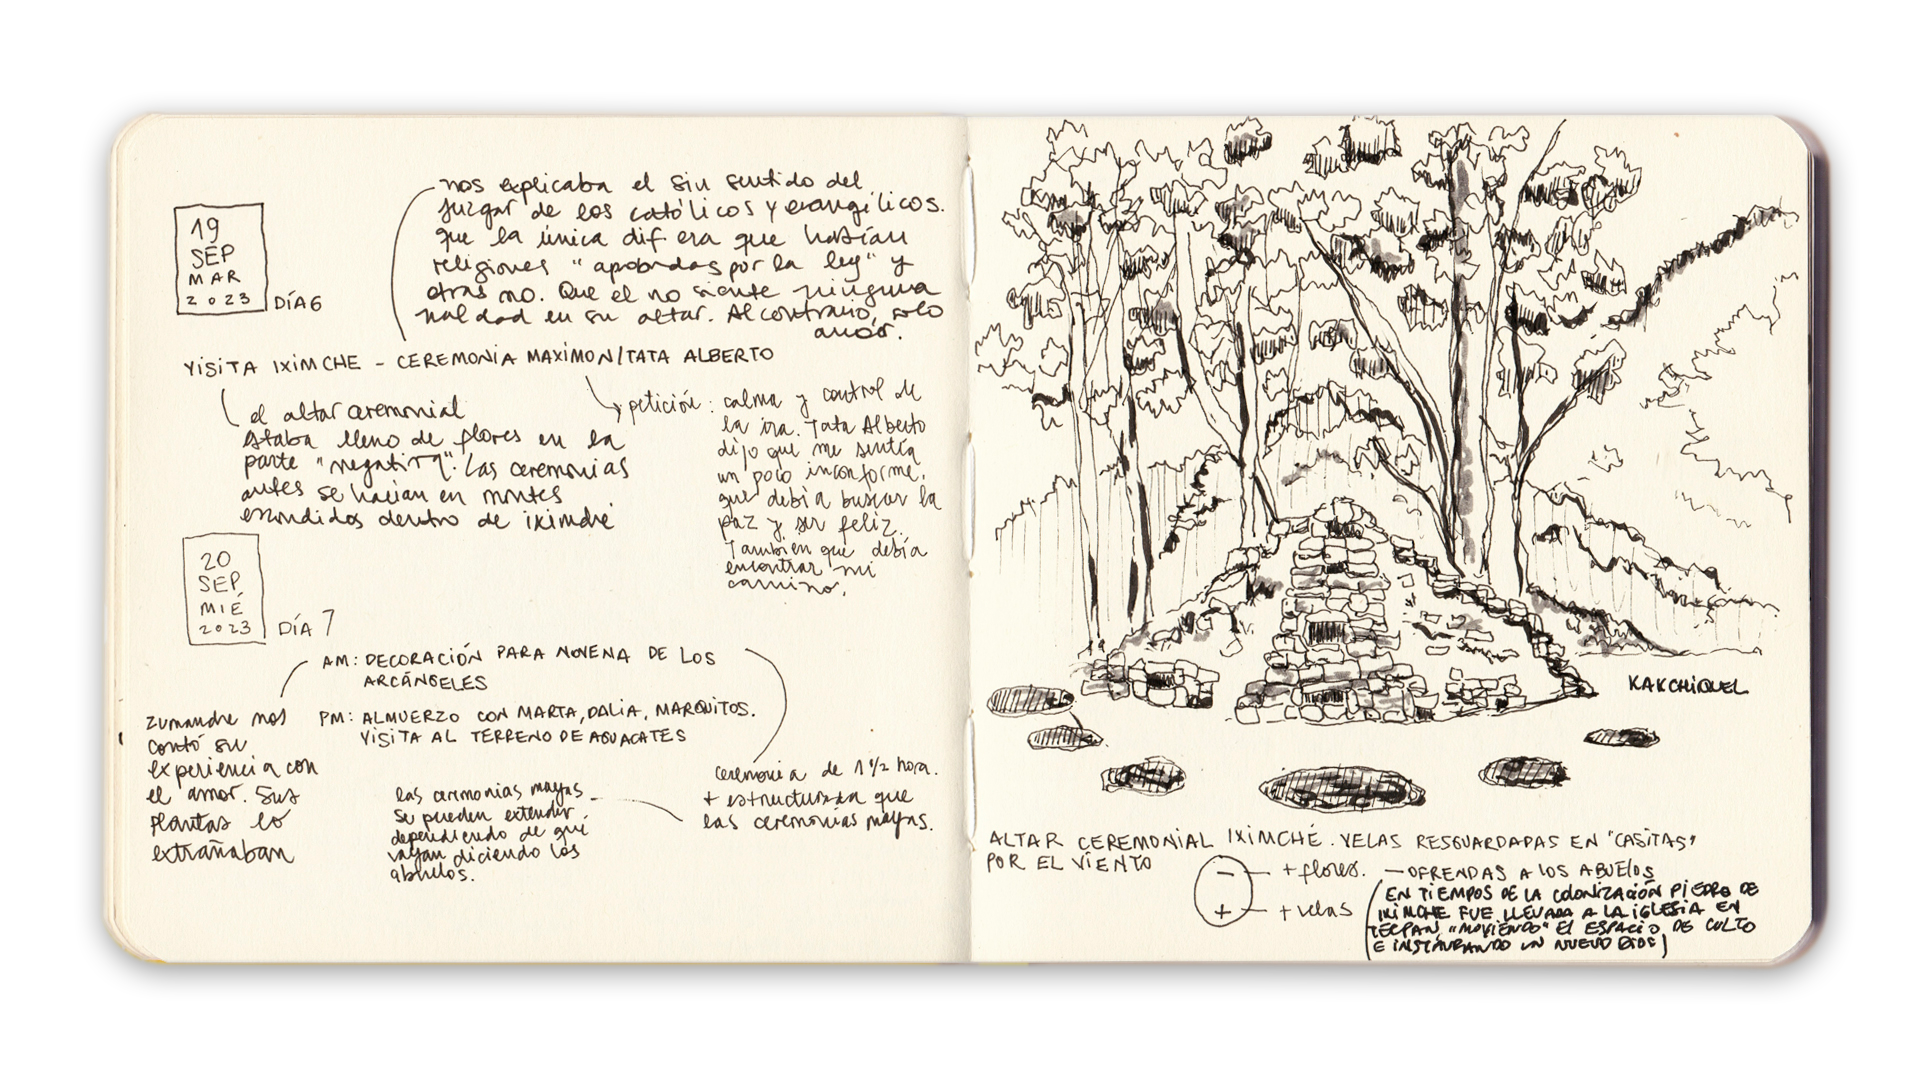 19
SEP
MAR
2023
DÍA 6
nos explicaba el sin sentido del
juzgar de los católicos y evangélicos.
que la única dif era que habían
religiones "aprobadas por la ley" y
otras no. Que el no siente ninguna
maldad en su altar. Al contrario, solo
amor.
VISITA IXIMCHE - CEREMONIA MAXIMON/TATA ALBERTO
el altar ceremonial
estaba lleno de flores en la
parte "negativa". Las ceremonias
antes se hacian en montes
escondidos dentro de iximché
petición: calma y control de
la ira. Tata Alberto
dijo que me sentía
un poco inconforme,
que debía buscar la
paz y ser feliz.
Tambien que debía
encontrar mi
camino.
20
SEP
MIÉ
2023
DÍA 7
AM: DECORACIÓN PARA NOVENA DE LOS
ARCÁNGELES
PM: ALMUERZO CON MARTA, DALIA, MARQUITOS.
VISITA AL TERRENO DE AGUACATES
nos
contó su
experiencia con
el amor. Sus
plantas lo
extrañaban
las ceremonias mayas
se pueden extender
dependiendo de qué
vayan diciendo los
abuelos.
ceremonia de 1 1/2 hora.
+ estructurada que
las ceremonias mayas.
KAKCHIQUEL
ALTAR CEREMONIAL IXIMCHÉ. VELAS RESGUARDADAS EN "CASITAS"
POR EL VIENTO
- + flores. - OFRENDAS A LOS ABUELOS
+ + velas
(EN TIEMPOS DE LA COLONIZACIÓN PIEDRA DE
IXIMCHE FUE LLEVADA A LA IGLESIA EN
TECPAN "MOVIENDO" EL ESPACIO DE CULTO
E INSTAURANDO UN NUEVO DIOS)